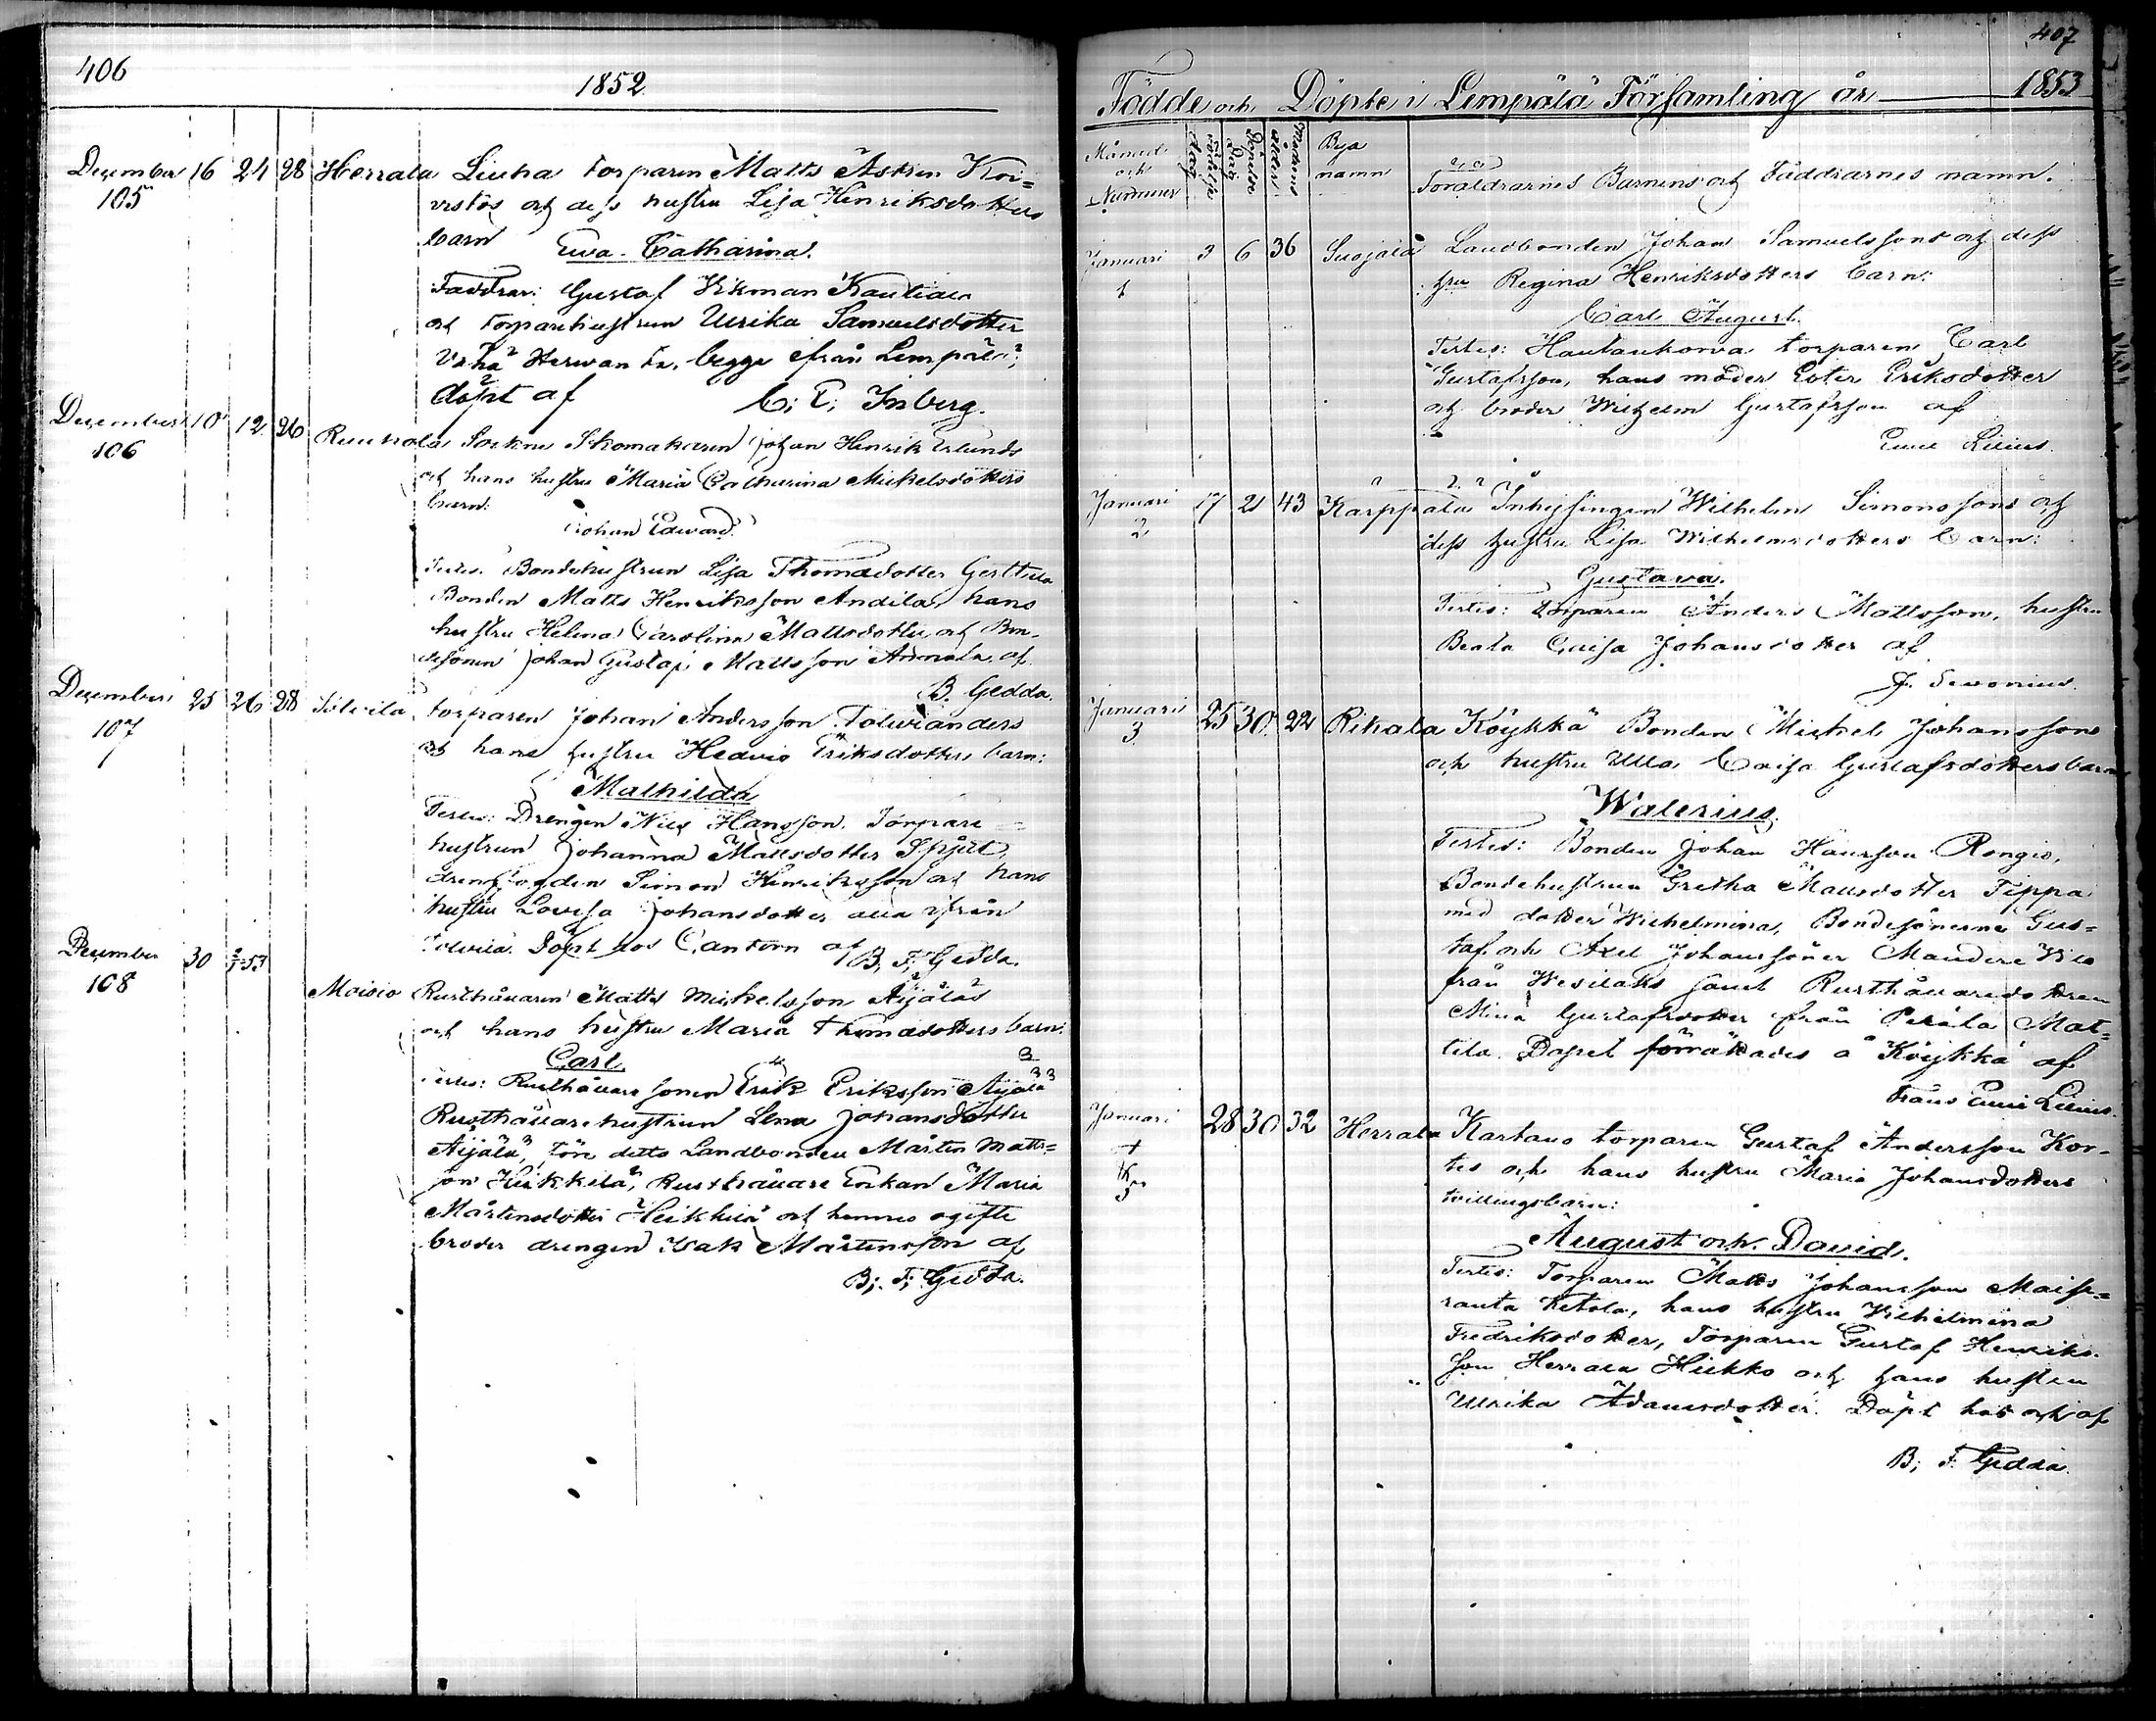 406
1852
December 16 24 28 Herrala Liuha torparen Matts Åströn Koi=
105 vistos och dess hustru Lisa Henriksdotters
barn
Ewa Catharina.
Faddrar: Gustaf Wikman Kautiala
och torparehustrun Ulrika Samuelsdotter
begge ifrån Lempälä;
döpt af C; E; Inberg.
December 10 12 26 Ruuhola Sockne Skomakaren Johan Henrik Erlunds
106 och hans hustru Maria Catharina Mickelsdotters
barn:
Johan Edward.
Testes: Bondehustrun Lisa Thomasdotter Gerttula
Bonden Matts Henriksson Andila, hans
hustru Helena Carolina Mattsdotter och Bon-
desonen Johan Gustaf Mattsson Annala, af
B. Gedda.
December 25 26 28 torparen Johan Andersson Tolvianders
107 och hans hustru Hedvig Eriksdotters barn:
Mathilda
Testes: Drengen Nils Hansson, Torpare
hustrun Johanna Mattsdotter
Simon Henriksson och hans
hustru Lovisa Johansdotter alla ifrån
Döpt hos Cantorn af B; F; Gedda.
December 30 2/1 53
108
Moisio Rusthållaren Matts Mickelsson Äijäläs
och hans hustru Maria Thomasdotters barn:
Carl.
Testes: Rusthållare sonen Erik Eriksson Äijälä
Rusthållarehustrun Lena Johansdotter
Äijälä, före detta Landbonden Mårten Matts=
son Heikkilä, Rusthållare Enkan Maria
Mårtensdotter Heikkilä och hennes ogifte
broder drengen Isak Mårtensson af
B; F; Gedda.
407
Födde och Döpte i Lempälä Församling år 1853
Månad och Nummer
Födelse dag
Döpelse dag
Modrens ålder
Bya namn
Föräldrarnes Barnens och Faddrarnes namn.
Januari 3 6 36 Suojala Landbonden Johan Samuelssons och dess
1 hru Regina Henriksdotters barn:
Carl August.
Testes: Hautankorva torparen Carl
Gustafsson, hans moder Ester Eriksdotter
och broder Wilhelm Gustafsson af
Emil Lilius.
Januari 17 21 43 Karppala Inhysingen Wilhelm Simonssons och
2 dess hustru Lisa Wilhelmsdotters barn:
Gustava.
Testes: torparen Anders Mattsson, hustru
Beata Caisa Johansdotter af
J. Sevonius.
Januari 25 30 22 Rikala Köykkä Bonden Mickel Johanssons
3 och hustru Ulla Caisa Gustafsdotters barn
Walerius.
Testes: Bonden Johan Hansson Rongio,
Bondehustrun Gretha Mattsdotter Teppa
med dotter Wilhelmina, Bondesönerne Gus=
taf och Axel Johanssöner
från Wesilaks samt Rusthållaredottren
Mina Gustafsdotter från Perälä Mat=
tila. Dopet förrättades å Köykkä af
Frans Emil Lilius.
Januari 28 30 32 Herrala Kartano torparen Gustaf Andersson Kor-
4 tes och hans hustru Maria Johansdotters
& tvillingsbarn:
5
August och David.
Testes: Torparen Matts Johansson Maise=
ranta Ketola, hans hustru Wilhelmina
Fredriksdotter, Torparen Gustaf Henriks-
son Herrala Heikko och hans hustru
Ulrika Adamsdotter. Döpt hos och af
B; F. Gedda.